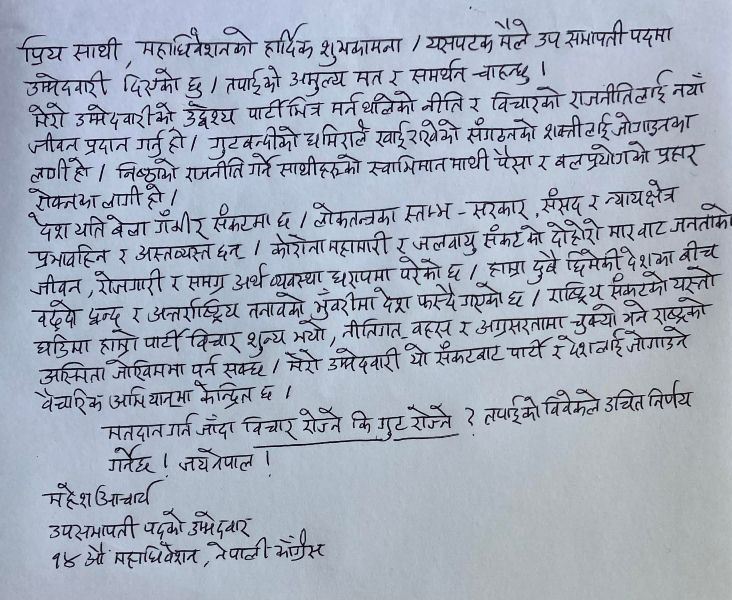 प्रिय साथी, महाधिवेशनको हार्दिक शुभकामना । यसपटक मैले उप सभापती पदमा
उम्मेदवारी दिएको छु । तपाईको अमुल्य मत र समर्थन चाहन्छु ।
मेरो उम्मेदवारीको उद्देश्य पार्टी भित्र मर्न थालेको नीति र विचारको राजनीतिलाई नयाँ
जीवन प्रदान गर्नु हो । गुटबन्दीको धमिराले खाई राखेको संगठनको शक्तीलाई जोगाउनका
लागी हो । निष्ठाको राजनीति गर्ने साथीहरुको स्वाभिमान माथी पैसा र बल प्रयोगको प्रहार
रोक्नका लागी हो ।
देश यति बेला गँभीर संकटमा छ । लोकतन्त्रका स्तम्भ - सरकार, संसद र न्यायक्षेत्र
प्रभावहिन र अस्तव्यस्त छन् । कोरोना महामारी र जलवायु संकटको दोहोरो मारबाट जनताको
जीवन, रोजगारी र समग्र अर्थ व्यवस्था धरापमा परेको छ । हाम्रा दुबै छिमेकी देशका बीच
बढ्दो द्वन्द र अन्तर्राष्ट्रिय तनावको भुँवरीमा देश फस्दै गएको छ । राष्ट्रिय संकटको यस्तो
घडिमा हाम्रो पार्टी विचार शुन्य भयो, नीतिगत बहस र अग्रसरतामा चुक्यो भने राष्ट्रको
अस्मिता जोखिममा पर्न सक्छ । मेरो उम्मेदवारी यो संकटबाट पार्टी र देशलाई जोगाउने
वैचारिक अभियानमा केन्द्रित छ ।
मतदान गर्न जाँदा विचार रोज्ने कि गुट रोज्ने ? तपाईको विवेकले उचित निर्णय
गर्नेछ । जय नेपाल !
महेश आचार्य
उपसभापती पदको उम्मेदवार
१४ औं महाधिवेशन, नेपाली काँग्रेस